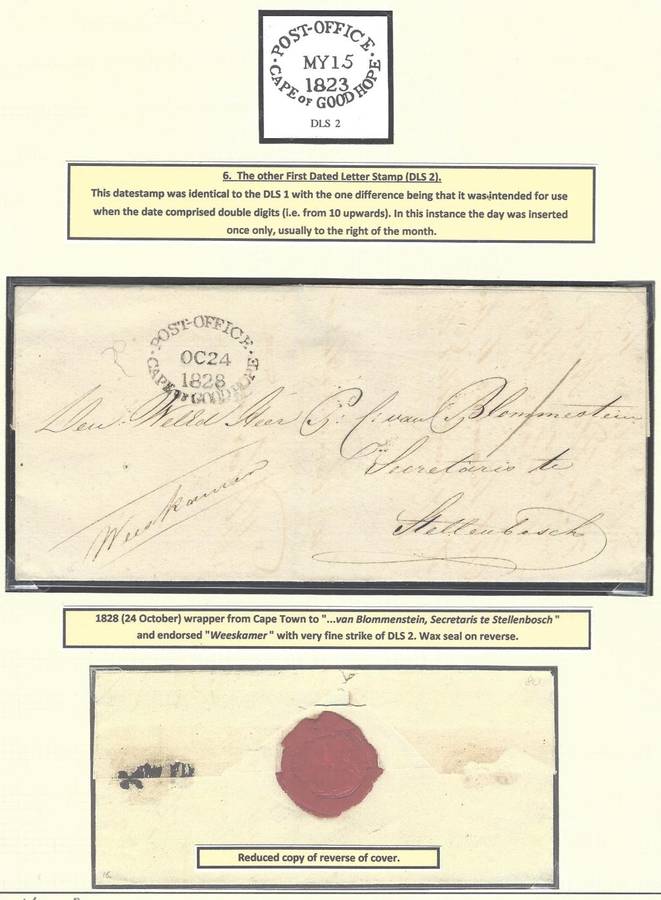 · POST-OFFICE ·
MY15
1823
CAPE OF GOOD HOPE
DLS 2
6. The other First Dated Letter Stamp (DLS 2).
This datestamp was identical to the DLS 1 with the one difference being that it was intended for use
when the date comprised double digits (i.e. from 10 upwards). In this instance the day was inserted
once only, usually to the right of the month.
· POST-OFFICE ·
OC24
1828
CAPE OF GOOD HOPE
Den Welld Heer van Blommestein
Secretaris te
Stellenbosch
Weeskamer
1828 (24 October) wrapper from Cape Town to "...van Blommenstein, Secretaris te Stellenbosch"
and endorsed "Weeskamer" with very fine strike of DLS 2. Wax seal on reverse.
Reduced copy of reverse of cover.